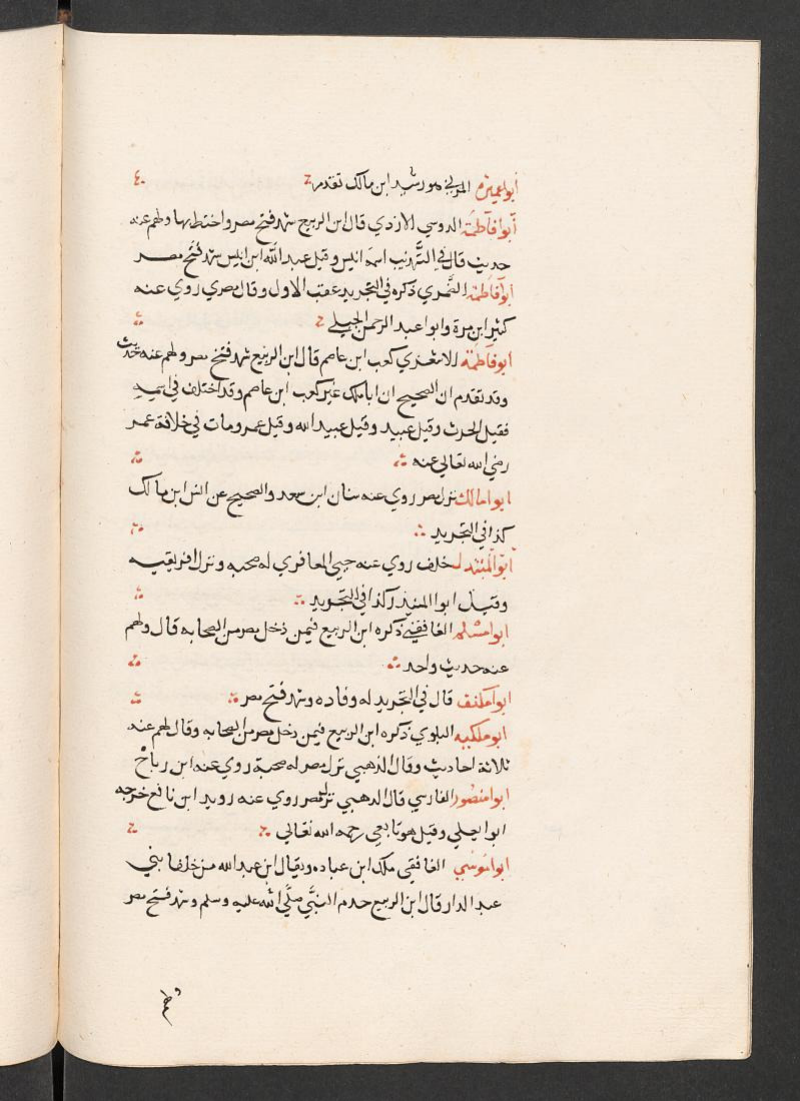 ابو عميرة المزني هو رشيد ابن مالك تقدم
ابوا فاطمة الدوسي الازدي قال ابن الربيع شهد فتح مصر واختط بها ولهم عنه
حديث قال في التهذيب اسمه انيس وقيل عبد الله ابن انيس شهد فتح مصر
ابوا فاطمة الضمري ذكره في التجريد عقب الاول وقال مصري روي عنه
كثير ابن مرة وابوا عبد الرحمن الجبلي
ابو فاطمة الاشعري كعب ابن عاصم قال ابن الربيع شهد فتح مصر ولهم عنه حديث
وقد تقدم ان الصحيح ان ابا ملك غير كعب ابن عاصم وقد اختلف في اسمه
فقيل الحرث وقيل عبيد وقيل عبيد الله وقيل عمرو ومات في خلافة عمر
رضي الله تعالي عنه
ابوا مالك نزل مصر روي عنه سنان ابن سعد والصحيح عن انس ابن مالك
كذا في التجريد
ابوا المبتذل خلف روي عنه حيي المعافري له صحبه ونزل افريقيه
وقيل ابوا المنيذر كذا في التجريد
ابوا مسلم الغافقي ذكره ابن الربيع فيمن دخل مصر من الصحابه قال ولهم
عنه حديث واحد
ابوا مكنف قال في التجريد له وفاده وشهد فتح مصر
ابو مليكه البلوي ذكره ابن الربيع فيمن دخل مصر من الصحابه وقال لهم عنه
ثلاثة احاديث وقال الذهبي نزل مصر له صحبة روي عنه ابن رباح
ابوا منصور الفارسي قال الدهبي نزل مصر روي عنه رويد ابن نافع خرجه
ابوا يعلي وقيل هو تابعي رحمه الله تعالي
ابوا موسي الغافقي ملك ابن عباده ويقال ابن عبد الله من خلفا بني
عبد الدار قال ابن الربيع خدم النبي صلي الله عليه وسلم وشهد فتح مصر